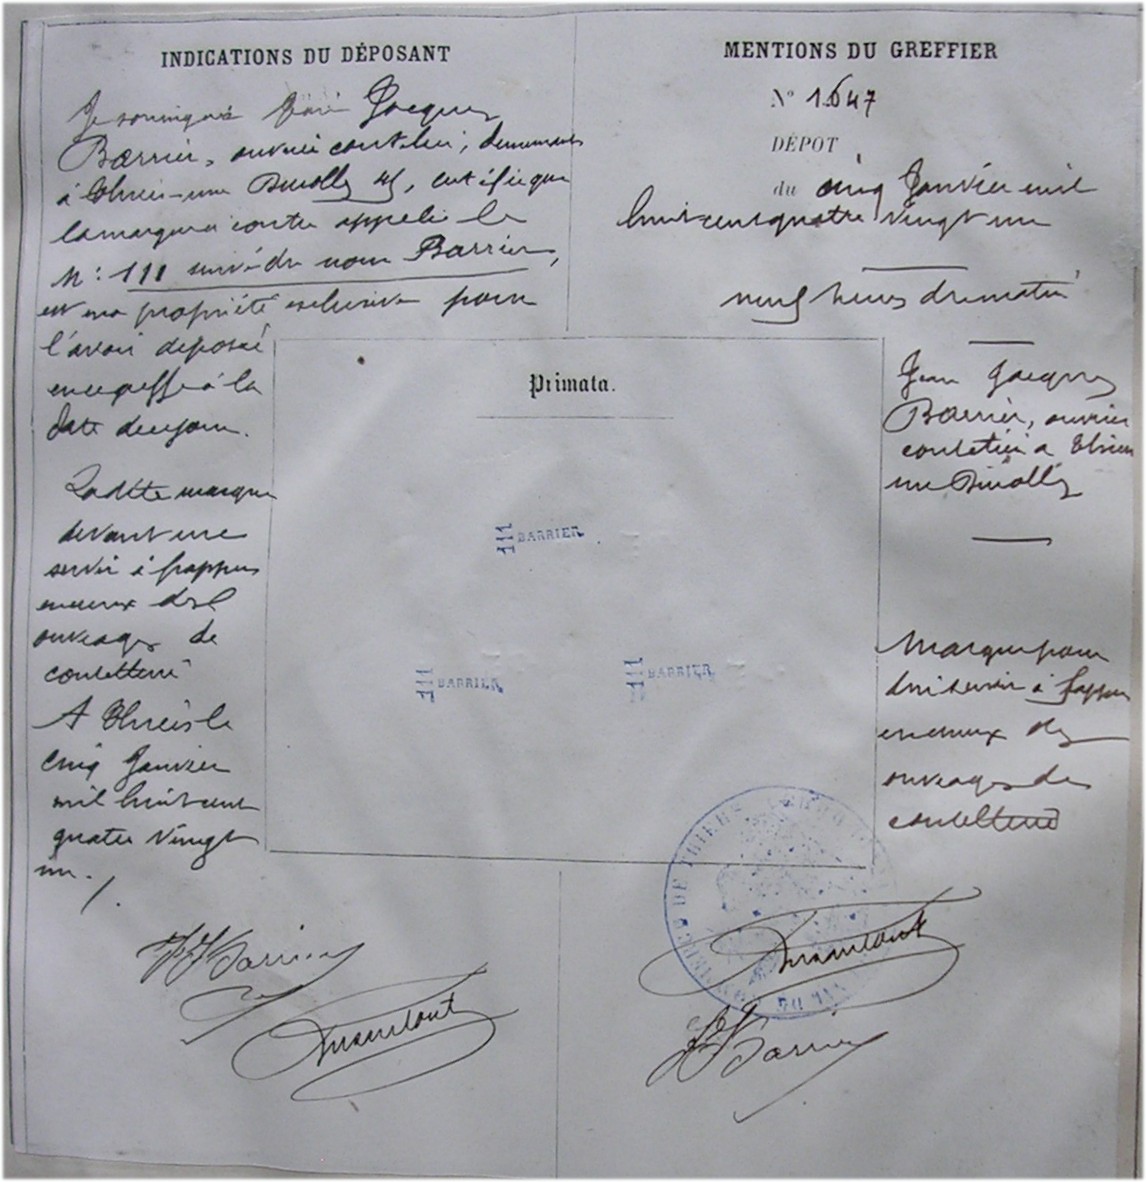 INDICATIONS DU DÉPOSANT
Je soussigné Jean Jacques
Barrier, ouvrier coutelier, demeurant
à Thiers rue Durolle 45, certifie que
la marque contre appelé le
N: 111 suivi du nom Barrier,
est ma propriété exclusive pour
l'avoir déposé
en ce greffe à la
date de ce jour.
Ladite marque
devant me
servir à frapper
en creux des
ouvrages de
coutellerie
A Thiers le
cinq Janvier
mil huit cent
quatre vingt
un.
JJ Barrier
MENTIONS DU GREFFIER
N° 1647
DÉPOT
du cinq Janvier mil
huit cent quatre vingt un
neuf heures du matin
Jean Jacques
Barrier, ouvrier
coutelier a Thiers
rue Durolle
Marque pour
lui servir à frapper
en creux des
ouvrages de
coutellerie
Primata.
111 BARRIER
111 BARRIER
111 BARRIER
DE THIERS
JJ Barrier